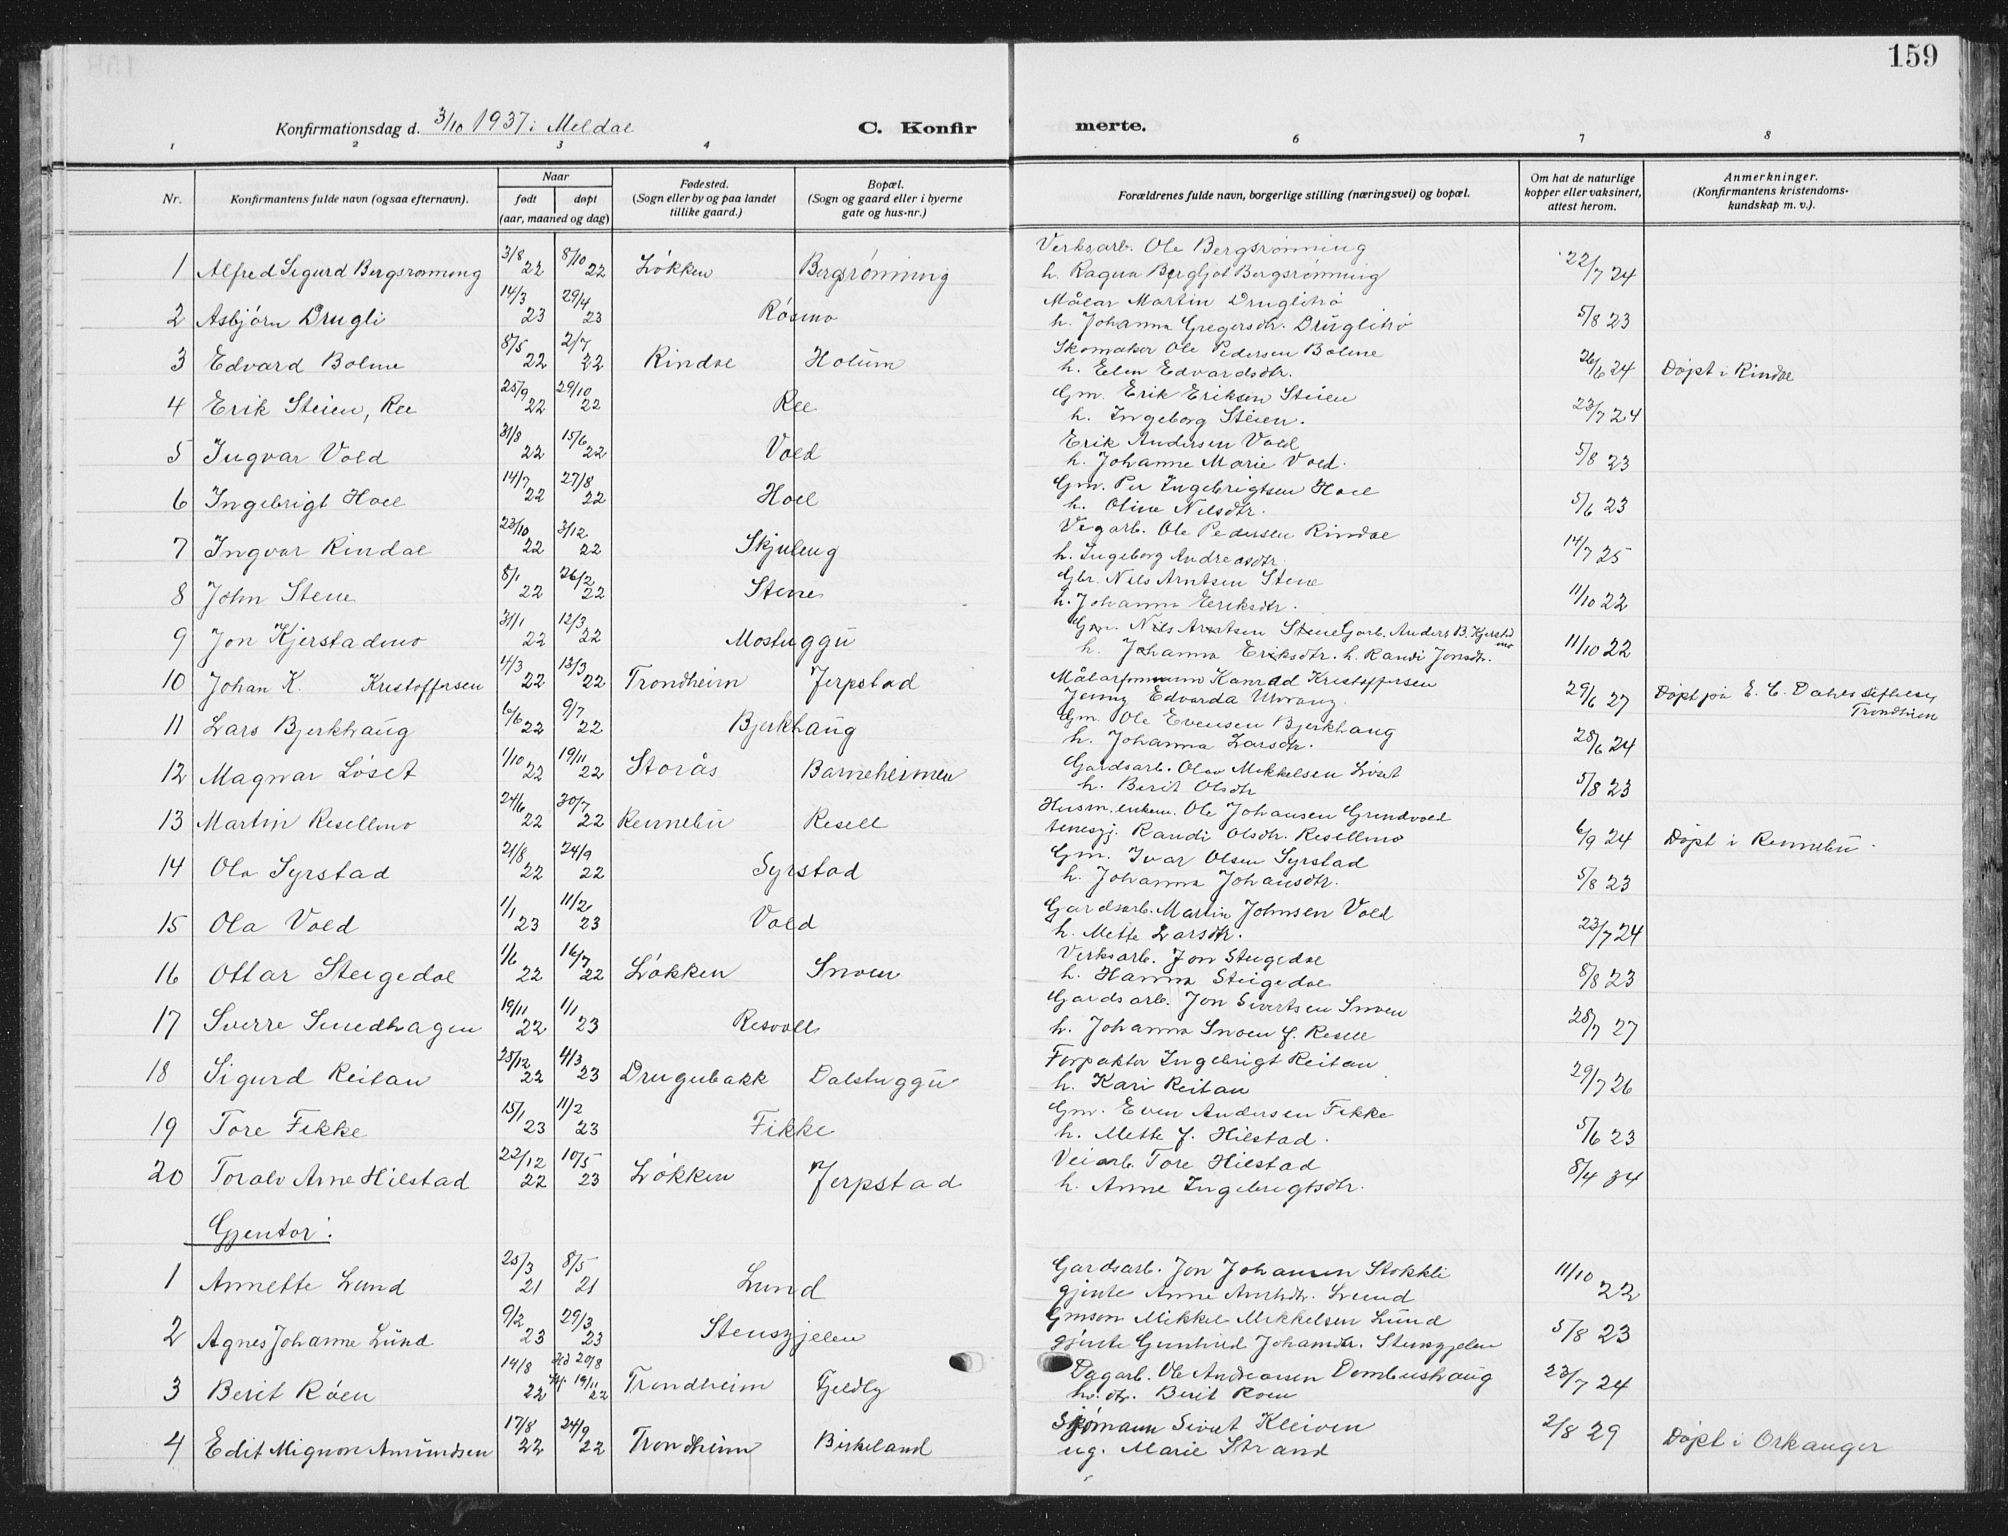 159
Konfirmationsdag d. 3/10 1937 i Meldal C. Konfirmerte.
1 2 3 4 6 7 8
Nr. Konfirmantens fulde navn (ogsaa efternavn). Naar født døpt (aar, maaned og dag) Fødested. (Sogn eller by og paa landet tillike gaard.) Bopæl. (Sogn og gaard eller i byerne gate og hus-nr.) Forældrenes fulde navn, borgerlige stilling (næringsvei) og bopæl. Om hat de naturlige kopper eller vaksinert, attest herom. Anmerkninger. (Konfirmantens kristendomskundskap m. v.).
1 Alfred Sigurd Bergsrønning 3/8 22 8/10 22 Løkken Bergsrønning Verksarb. Ole Bergsrønning
h. Ragna Bergljot Bergsrønning 22/7 24
2 Asbjørn Drugli 14/3 23 29/4 23 Røsmo Målar Martin Druglitrø
h. Johanna Gregersdtr. Druglitrø 5/8 23
3 Edvard Bolme 8/5 22 2/7 22 Rindal Holum Skomaker Ole Pedersen Bolme
h. Elen Edvardsdtr. 26/6 24 Døpt i Rindal
4 Erik Steien, Ree 25/9 22 29/10 22 Ree Gm. Erik Eriksen Steien
h. Ingeborg Steien. 23/7 24
5 Ingvar Vold 31/3 22 15/6 22 Vold Erik Andersen Vold
h. Johanne Marie Vold. 5/8 23
6 Ingebrigt Hoel 14/7 22 27/8 22 Hoel Gm. Per Ingebrigtsen Hoel
h. Oline Nilsdtr. 5/6 23
7 Ingvar Rindal 23/10 22 3/12 22 Skjuleng Vegarb. Ole Pedersen Rindal
h. Ingeborg Andreasdtr. 14/7 25
8 John Stene 8/1 22 26/2 22 Stene Gbr. Nils Arntsen Stene
h. Johanna Eeriksdtr. 11/10 22
9 Jon Kjerstadmo 31/1 22 12/3 22 Mostuggu Gm. Nils Arntsen Stene Garb. Anders B. Kjerstadmo
h. Johanna Eriksdtr. h. Randi Jonsdtr. 11/10 22
10 Johan K. Kristoffersen 4/3 22 13/3 22 Trondheim Jerpstad Målarformann Konrad Kristoffersen
Jenny Edvarda 29/6 27 Døpt på E. C. Dahls stiftelse, Trondheim
11 Lars Bjerkhaug 6/6 22 9/7 22 Bjerkhaug Gm. Ole Evensen Bjerkhaug
h. Johanna Larsdtr. 28/6 24
12 Magnar Løset 1/10 22 19/11 22 Storås Barneheimen Gardsarb. Olav Mikkelsen Løset
h. Berit Olsdtr 5/8 23
13 Martin Resellmo 24/6 22 30/7 22 Rennebu Resell Husm. enkem. Ole Johansen Grindvold
tenesgj. Randi Olsdtr. Resellmo 6/9 24 Døpt i Rennebu.
14 Ola Syrstad 21/8 22 24/9 22 Syrstad Gm. Ivar Olsen Syrstad
h. Johanna Johansdtr. 5/8 23
15 Ola Vold 1/1 23 11/2 23 Vold Gardsarb. Martin Johnsen Vold
h. Mette Larsdtr. 23/7 24
16 Ottar Steigedal 1/6 22 16/7 22 Løkken Snoen Verksarb. Jon Steigedal
h. Hanna Steigedal 8/8 23
17 Sverre Smedhagen 19/11 22 1/1 23 Resvoll Gardsarb. Jon Sivertsen Snoen
h. Johanna Snoen f. Resell 28/7 27
18 Sigurd Reitan 25/12 22 4/3 23 Drugubakk Dalstuggu Forpaktor Ingebrigt Reitan
h. Kari Reitan 29/7 26
19 Tore Fikke 15/1 23 11/2 23 Fikke Gm. Even Andersen Fikke
h. Mette f. Hilstad. 5/6 23
20 Toralv Arne Hilstad 22/12 22 10/5 23 Løkken Jerpstad Veiarb. Tore Hilstad
h. Anne Ingebrigtsdtr. 8/4 34
Gjentor:
1 Annette Lund 25/3 21 8/5 21 Lund Gardsarb. Jon Johansen Stokkli
gjente Anne Arntsdtr. Lund 11/10 22
2 Agnes Johanne Lund 9/2 23 29/3 23 Stensgjelen Gmson Mikkel Mikkelsen Lund
gjente Gunhild Johansdtr. Stensgjelen 5/8 23
3 Berit Røen 14/8 22 Hd 20/8 19/11 22 Trondheim Fjeldly Dagarb. Ole Andreasen Dombushaug
h. dtr. Berit Roen 23/7 24
4 Edit Mignon Amundsen 17/8 22 24/9 22 Trondheim Birkeland Sjømann Sivert Kleiven
ug. Marie Strand 2/8 29 Døpt i Orkanger